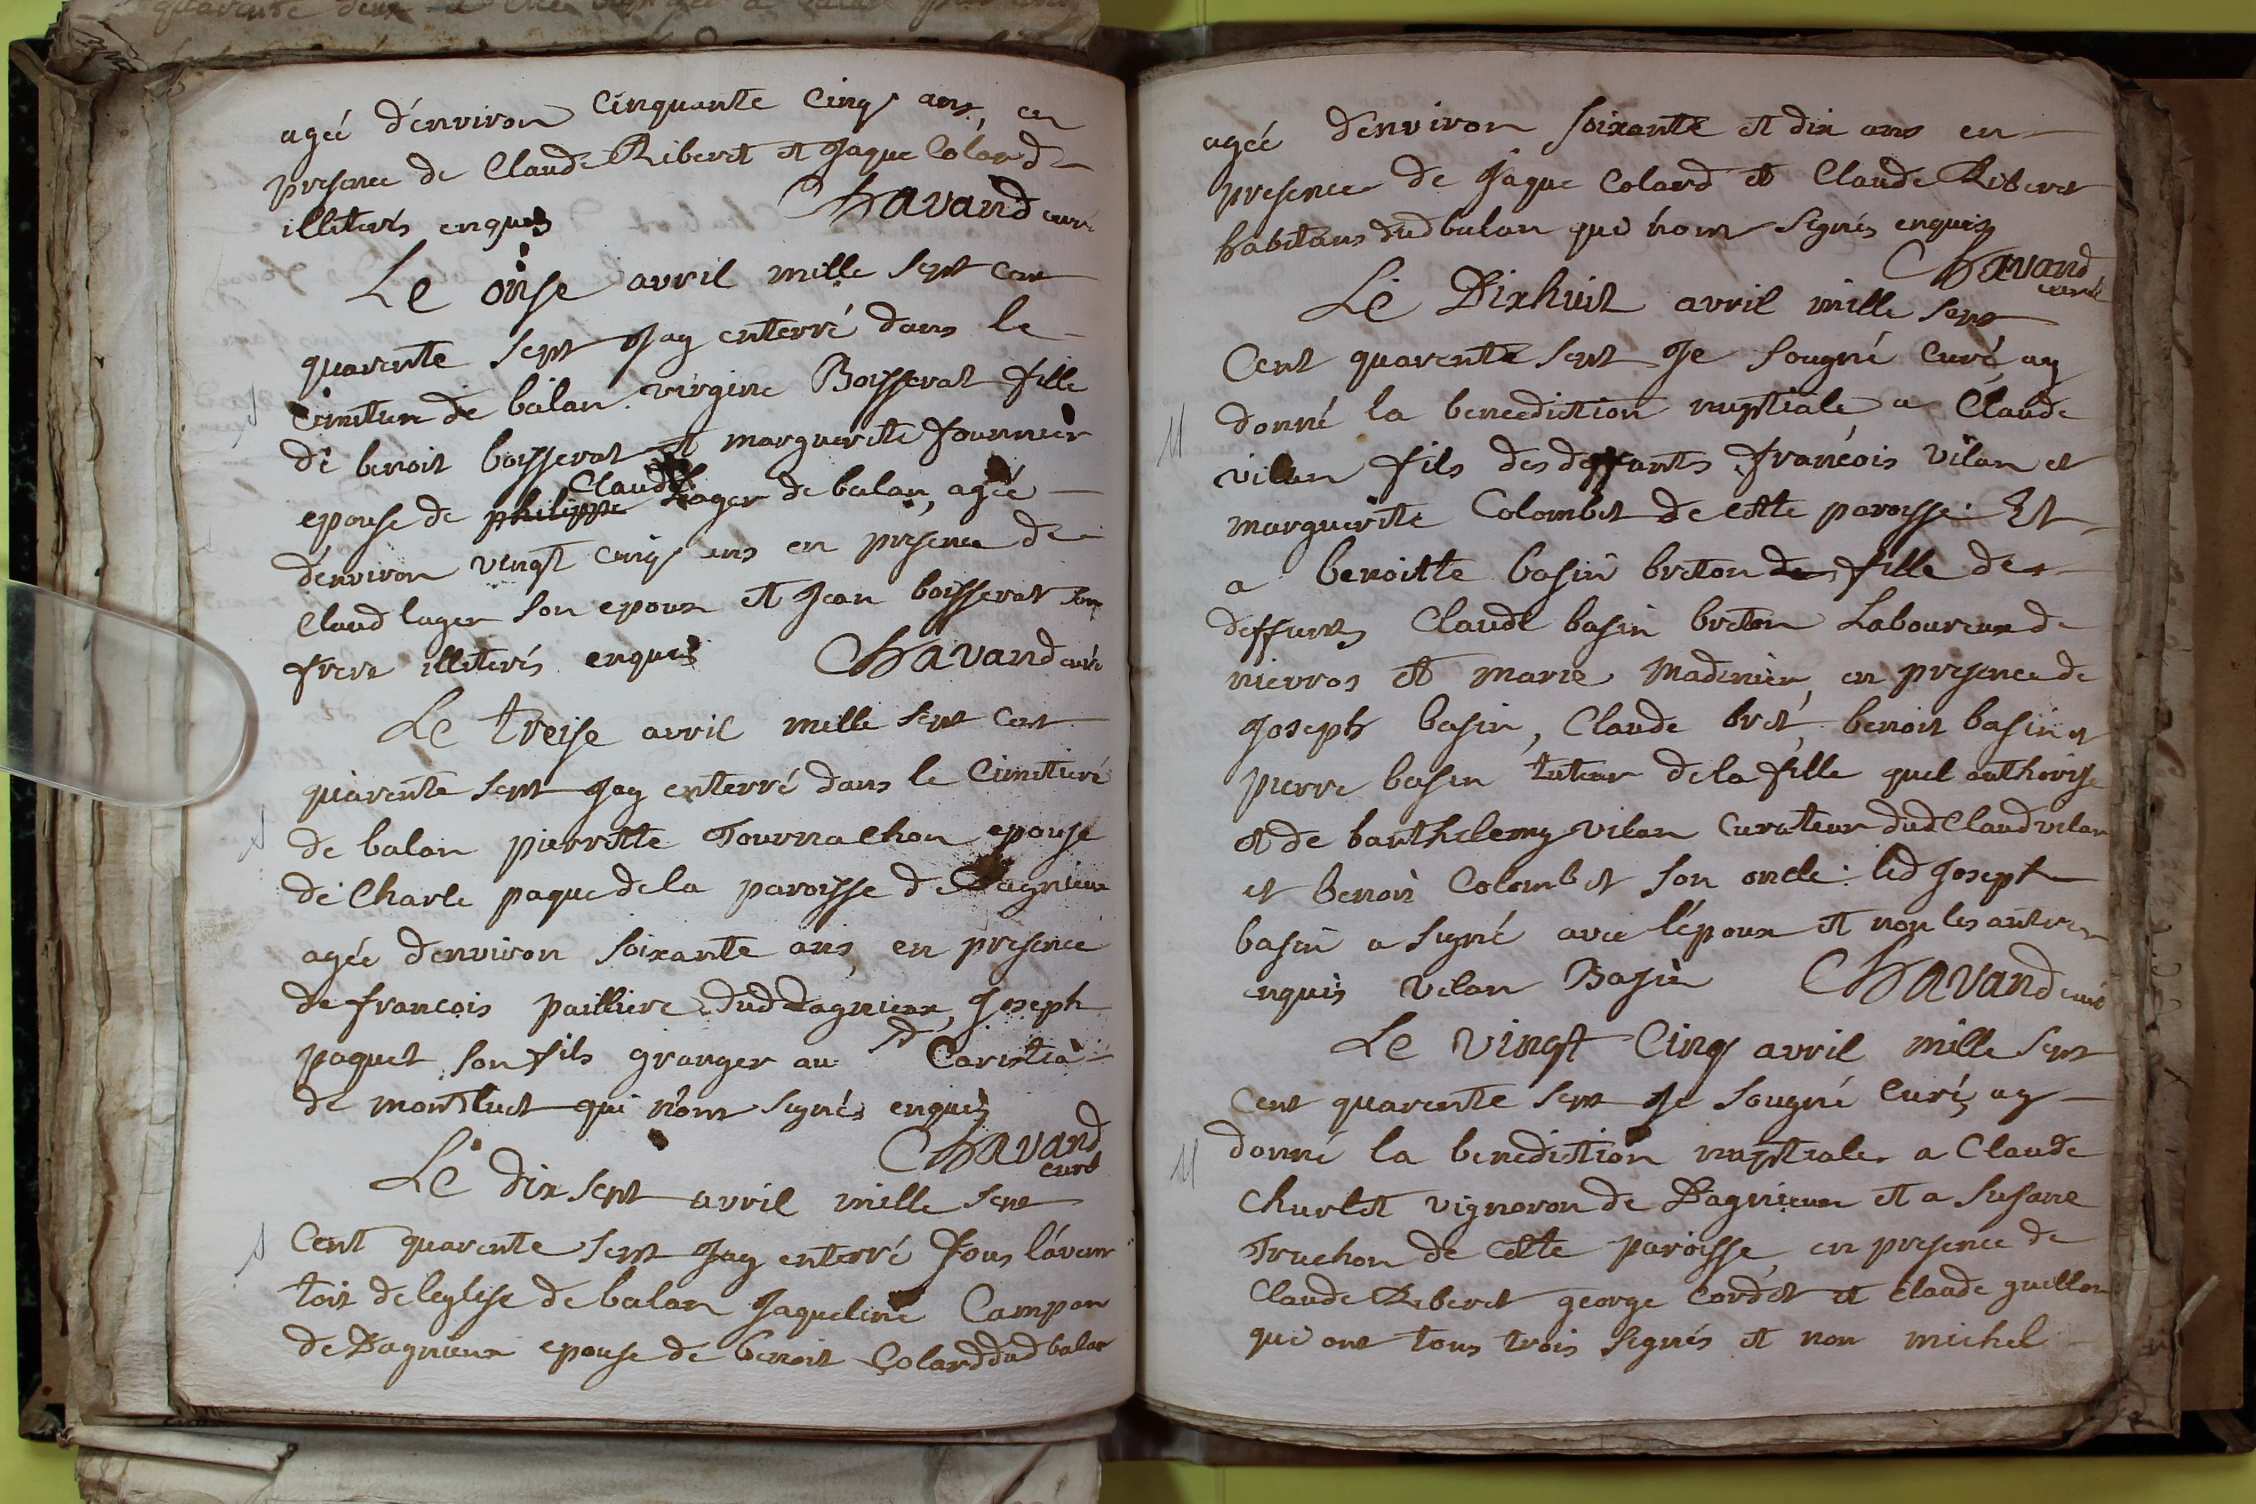 agée d'environ cinquante cinq ans, en
presence de Claude Riberet et Jaque Colard
illiterés enquis Chavand curé
Le onse avril mille sept cent
quarente sept Jay enterré dans le
Cimitiere de balan virgine Boisserat fille
de benoit boisserat et marguerite fournier
Claude
epouse de philippe lager de balan, agée
d'environ vingt cinq ans en presence de
Claud lager son epoux et Jean boisserat son
frere illiterés enquis Chavand curé
Le treise avril mille sept cent
quarente sept Jay enterré dans le Cimitieré
de balan pierrette Tournachon epouse
de Charle paque de la paroisse de Dagnieux
agée d'environ soixante ans, en presence
de francois pailliere dud Dagnieux, Joseph
paquet son fils granger au Sr Caristia
de montluet qui n'ont signés enquis
Chavand
curé
Le dix sept avril mille sept
Cent quarente sept Jay enterré sous l'avant
toit de leglise de balan Jaqueline Campan
de Dagnieux epouse de benoit Colard dud balan
agée d'environ soixante et dix ans en
presence de Jaque Colard et Claude Riberet
habitans dud balan qui n'ont signés enquis
Chavand
curé
Le Dixhuit avril mille sept
Cent quarente sept Je sougné curé, ay
M donné la benediction nuptiale a Claude
vilan fils des deffunts francois vilan et
marguerite Colombet de cette paroisse. Et
a benoitte basin breton de fille des
deffunts Claude basin breton Laboureur de
nievros et marie Madinier, en presence de
Joseph basin, Claude bret, benoit basin et
pierre basin tuteur de la fille quel authorise
et de barthelemy vilan Curateur dud Claud vilan
et benoit Colombet son oncle: led Joseph
basin a signé avec l'epoux et non les autres
enquis Vilan Basin Chavand curé
Le vingt Cinq avril mille sept
cent quarente sept Je sougné curé, ay
M donné la benediction nuptiale a Claude
Churlet vigneron de Dagnieux et a Susane
Truchon de cette paroisse, en presence de
Claude Riberet george Cordet et Claude guillon
qui ont tous trois signés et non michel